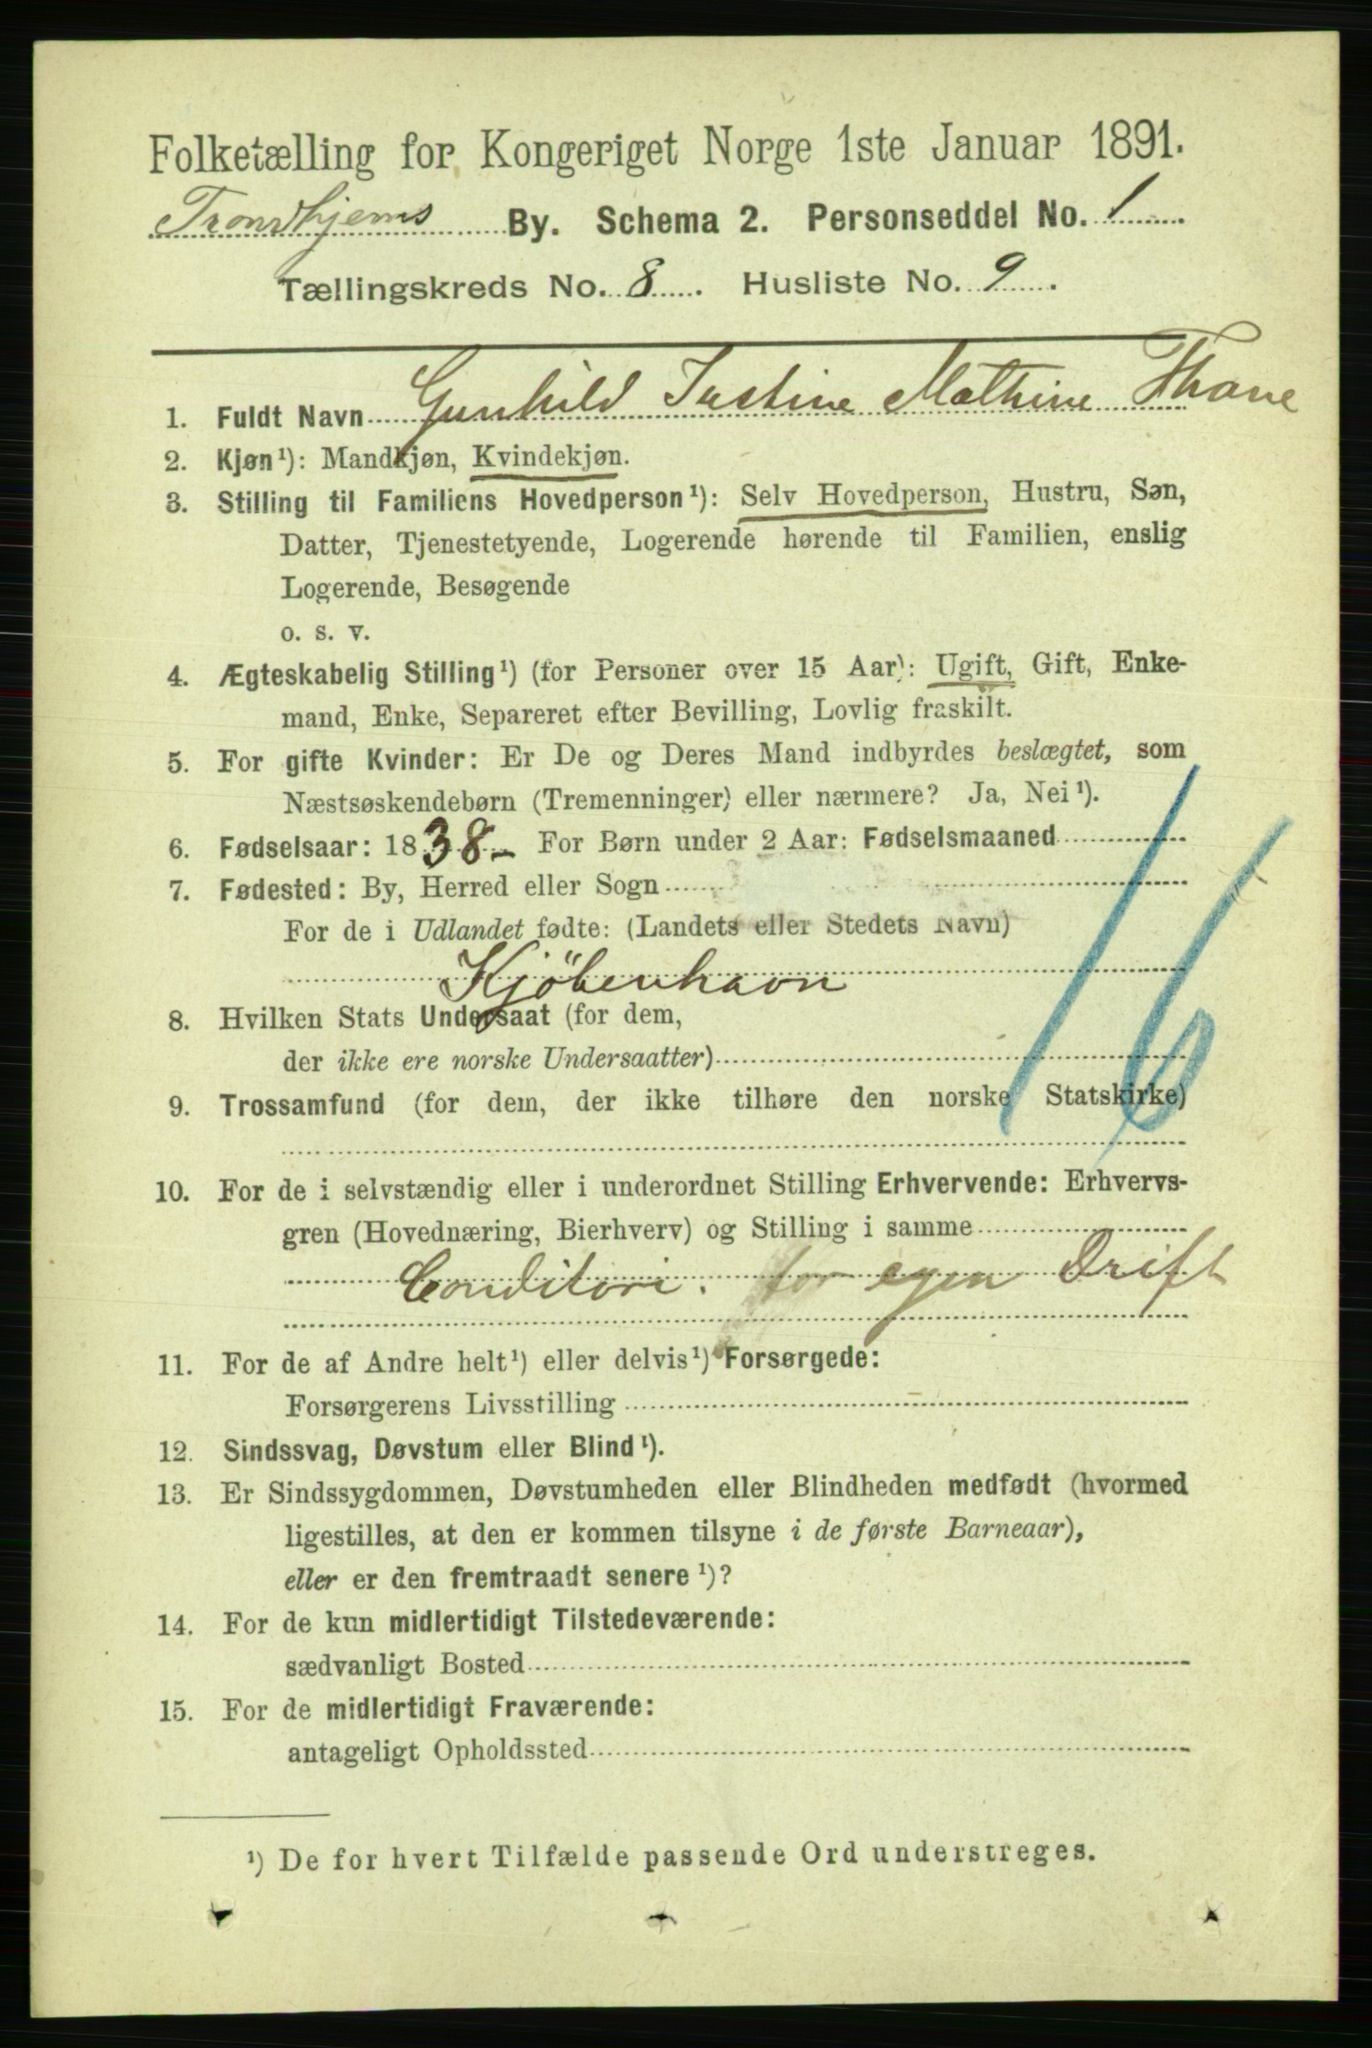 Folketælling for Kongeriget Norge 1ste Januar 1891.
Trondhjems By. Schema 2. Personseddel No. 1
Tællingskreds No. 8 Husliste No. 9
1. Fuldt Navn Gunhild Justine Mathine Thane
2. Kjøn¹): Mandkjøn, Kvindekjøn.
3. Stilling til Familiens Hovedperson¹): Selv Hovedperson, Hustru, Søn,
Datter, Tjenestetyende, Logerende hørende til Familien, enslig
Logerende, Besøgende
o. s. v.
4. Ægteskabelig Stilling¹) (for Personer over 15 Aar): Ugift, Gift, Enke-
mand, Enke, Separeret efter Bevilling, Lovlig fraskilt.
5. For gifte Kvinder: Er De og Deres Mand indbyrdes beslægtet, som
Næstsøskendebørn (Tremenninger) eller nærmere? Ja, Nei¹).
6. Fødselsaar: 1838 For Børn under 2 Aar: Fødselsmaaned
7. Fødested: By, Herred eller Sogn
For de i Udlandet fødte: (Landets eller Stedets Navn)
Kjöbenhavn
8. Hvilken Stats Undersaat (for dem,
der ikke ere norske Undersaatter)
16
9. Trossamfund (for dem, der ikke tilhøre den norske Statskirke)
10. For de i selvstændig eller i underordnet Stilling Erhvervende: Erhvervs-
gren (Hovednæring, Bierhverv) og Stilling i samme
Conditori. for egen Drift
11. For de af Andre helt¹) eller delvis¹) Forsørgede:
Forsørgerens Livsstilling
12. Sindssvag, Døvstum eller Blind¹).
13. Er Sindssygdommen, Døvstumheden eller Blindheden medfødt (hvormed
ligestilles, at den er kommen tilsyne i de første Barneaar),
eller er den fremtraadt senere¹)?
14. For de kun midlertidigt Tilstedeværende:
sædvanligt Bosted
15. For de midlertidigt Fraværende:
antageligt Opholdssted
¹) De for hvert Tilfælde passende Ord understreges.